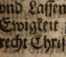 vnd Lassen
Ewigkeit
recht Chris